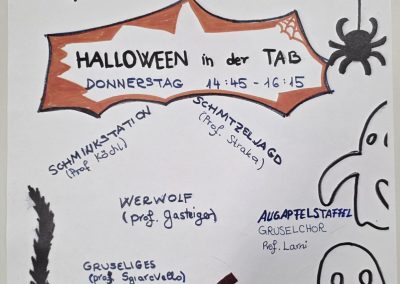 HALLOWEEN in der TAB
DONNERSTAG 14:45 - 16:15
SCHMINKSTATION
(Prof. Köchl)
SCHNITZELJAGD
(Prof. Straka)
WERWOLF
(prof. Gasteiger)
AUGAPFELSTAFFEL
GRUSELCHOR
Prof. Larni
GRUSELIGES
(prof. Sgiarovello)